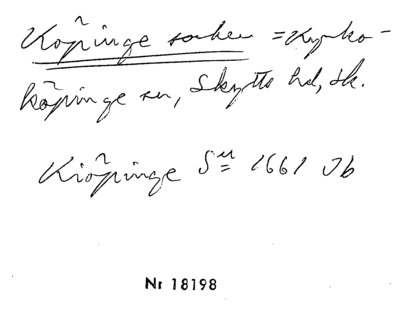 Köpinge socken = Kyrko-
köpinge sn, Skytts hd, Sk.
Kiöpinge Sn 1661 Jb
Nr 18198